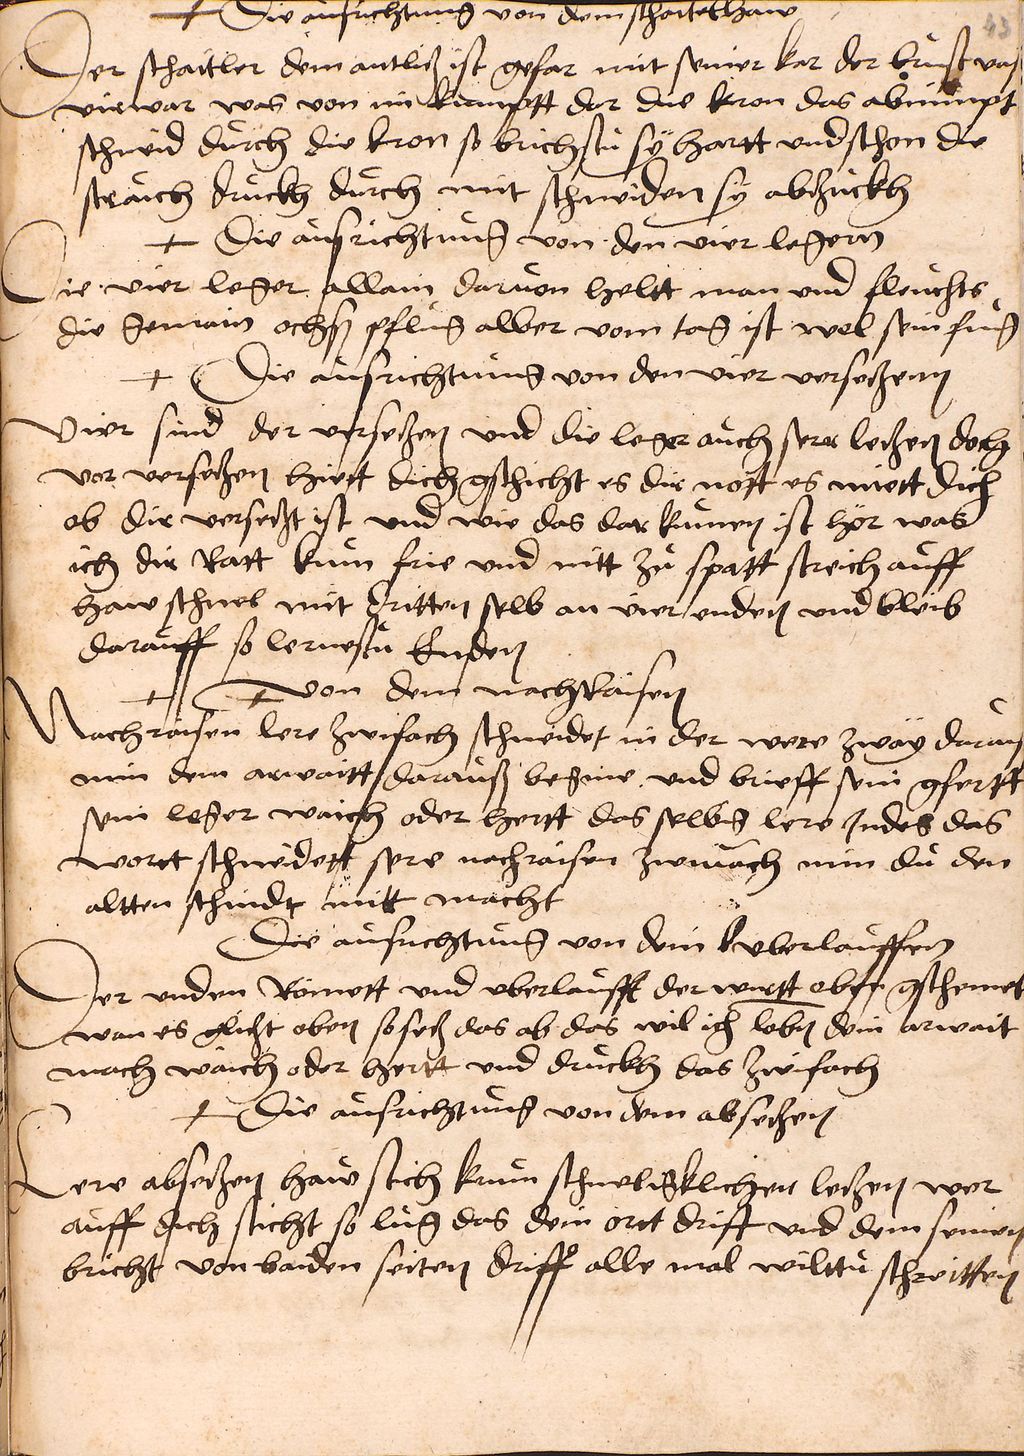 Die ausrichtung von dem schaitelhaw
43
Der schaitler dem antlitz ist gefar mit seiner kar der brust vast
vierwar was von im kumptt dar die kron das abnimpt
schneid durch die kron so brichstu sÿ hartt und schon die
straich druckh durch mit schneiden sÿ abzuckh
Die ausrichtung von den vier legern
Die vier leger allain darvon heltt man und fleuchts
die gemain ochss pflug alber vom tag ist wol sein fug
Die ausrichtung von den vier versetzenn
Vier sind der versetzen und die leger auch serr letzen doch
vor versetzen hiett dich gschicht es dir nott es miett dich
ob dir versetzt ist und wie das dar kumen ist hör was
ich dir Ratt kum frie und nitt zu spatt streich auff
haw schnel mit dritten selb an vier enden und bleib
darauff so lernestu Enden
von dem nachRaisen
Nachraisen lere zwifach schneidet in der were zwaÿ daraus
nim dem arwaitt darauß begine und brieff sein gfertt
sein leger waich oder hertt das selbig lere Indes das
wortt schneidett sere nachraisen zwiuach nim du den
altten schnidt mitt macht
Die ausrichtung von dem uberlauffen
Der unden Römett und uberlaufft der wirtt oben gschemet
wan es glitzt oben so setz das ab das wil ich loben dein arwait
mach waich oder hertt und druckh das zwifach
Die ausrichtung von dem absetzen
Lere absetzen haw stich krum schnelligklichen letzen wer
auff dich sticht so lug das dein ortt drift und dem seinen
bricht von baiden seiten driff alle mal wilttu schreitten